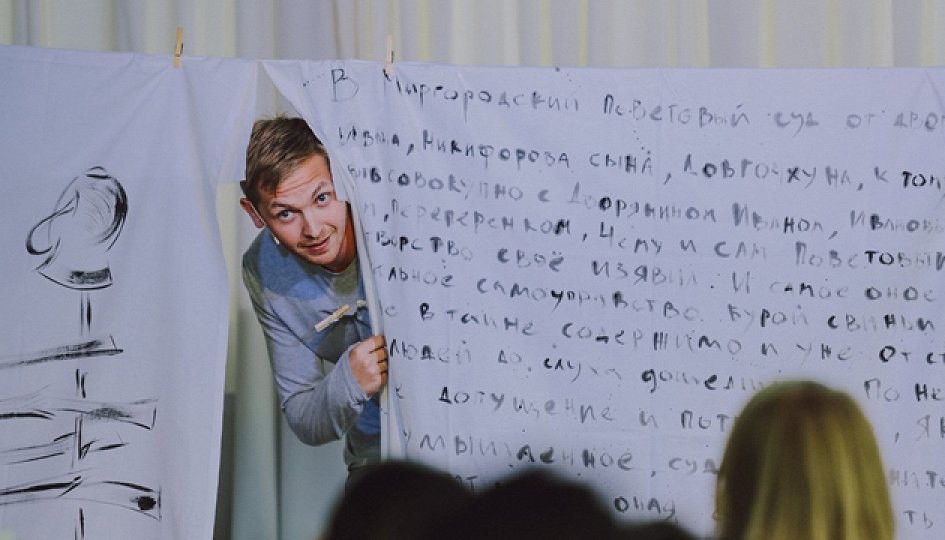 В Миргородский поветовый суд от двор
Ивана, Никифорова сына, Довгочхуна, к топ
совокупно с дворянином Иваном, Ивановы
Перерепенком, чему и сам поветовый
ворство своё изявил. И самое оное
льное самоуправство бурой свиньи
в тайне содержимо и уже от ст
людей до слуха дошедш По не
допущение и пот , як
умышленное, суд нит
оная ть